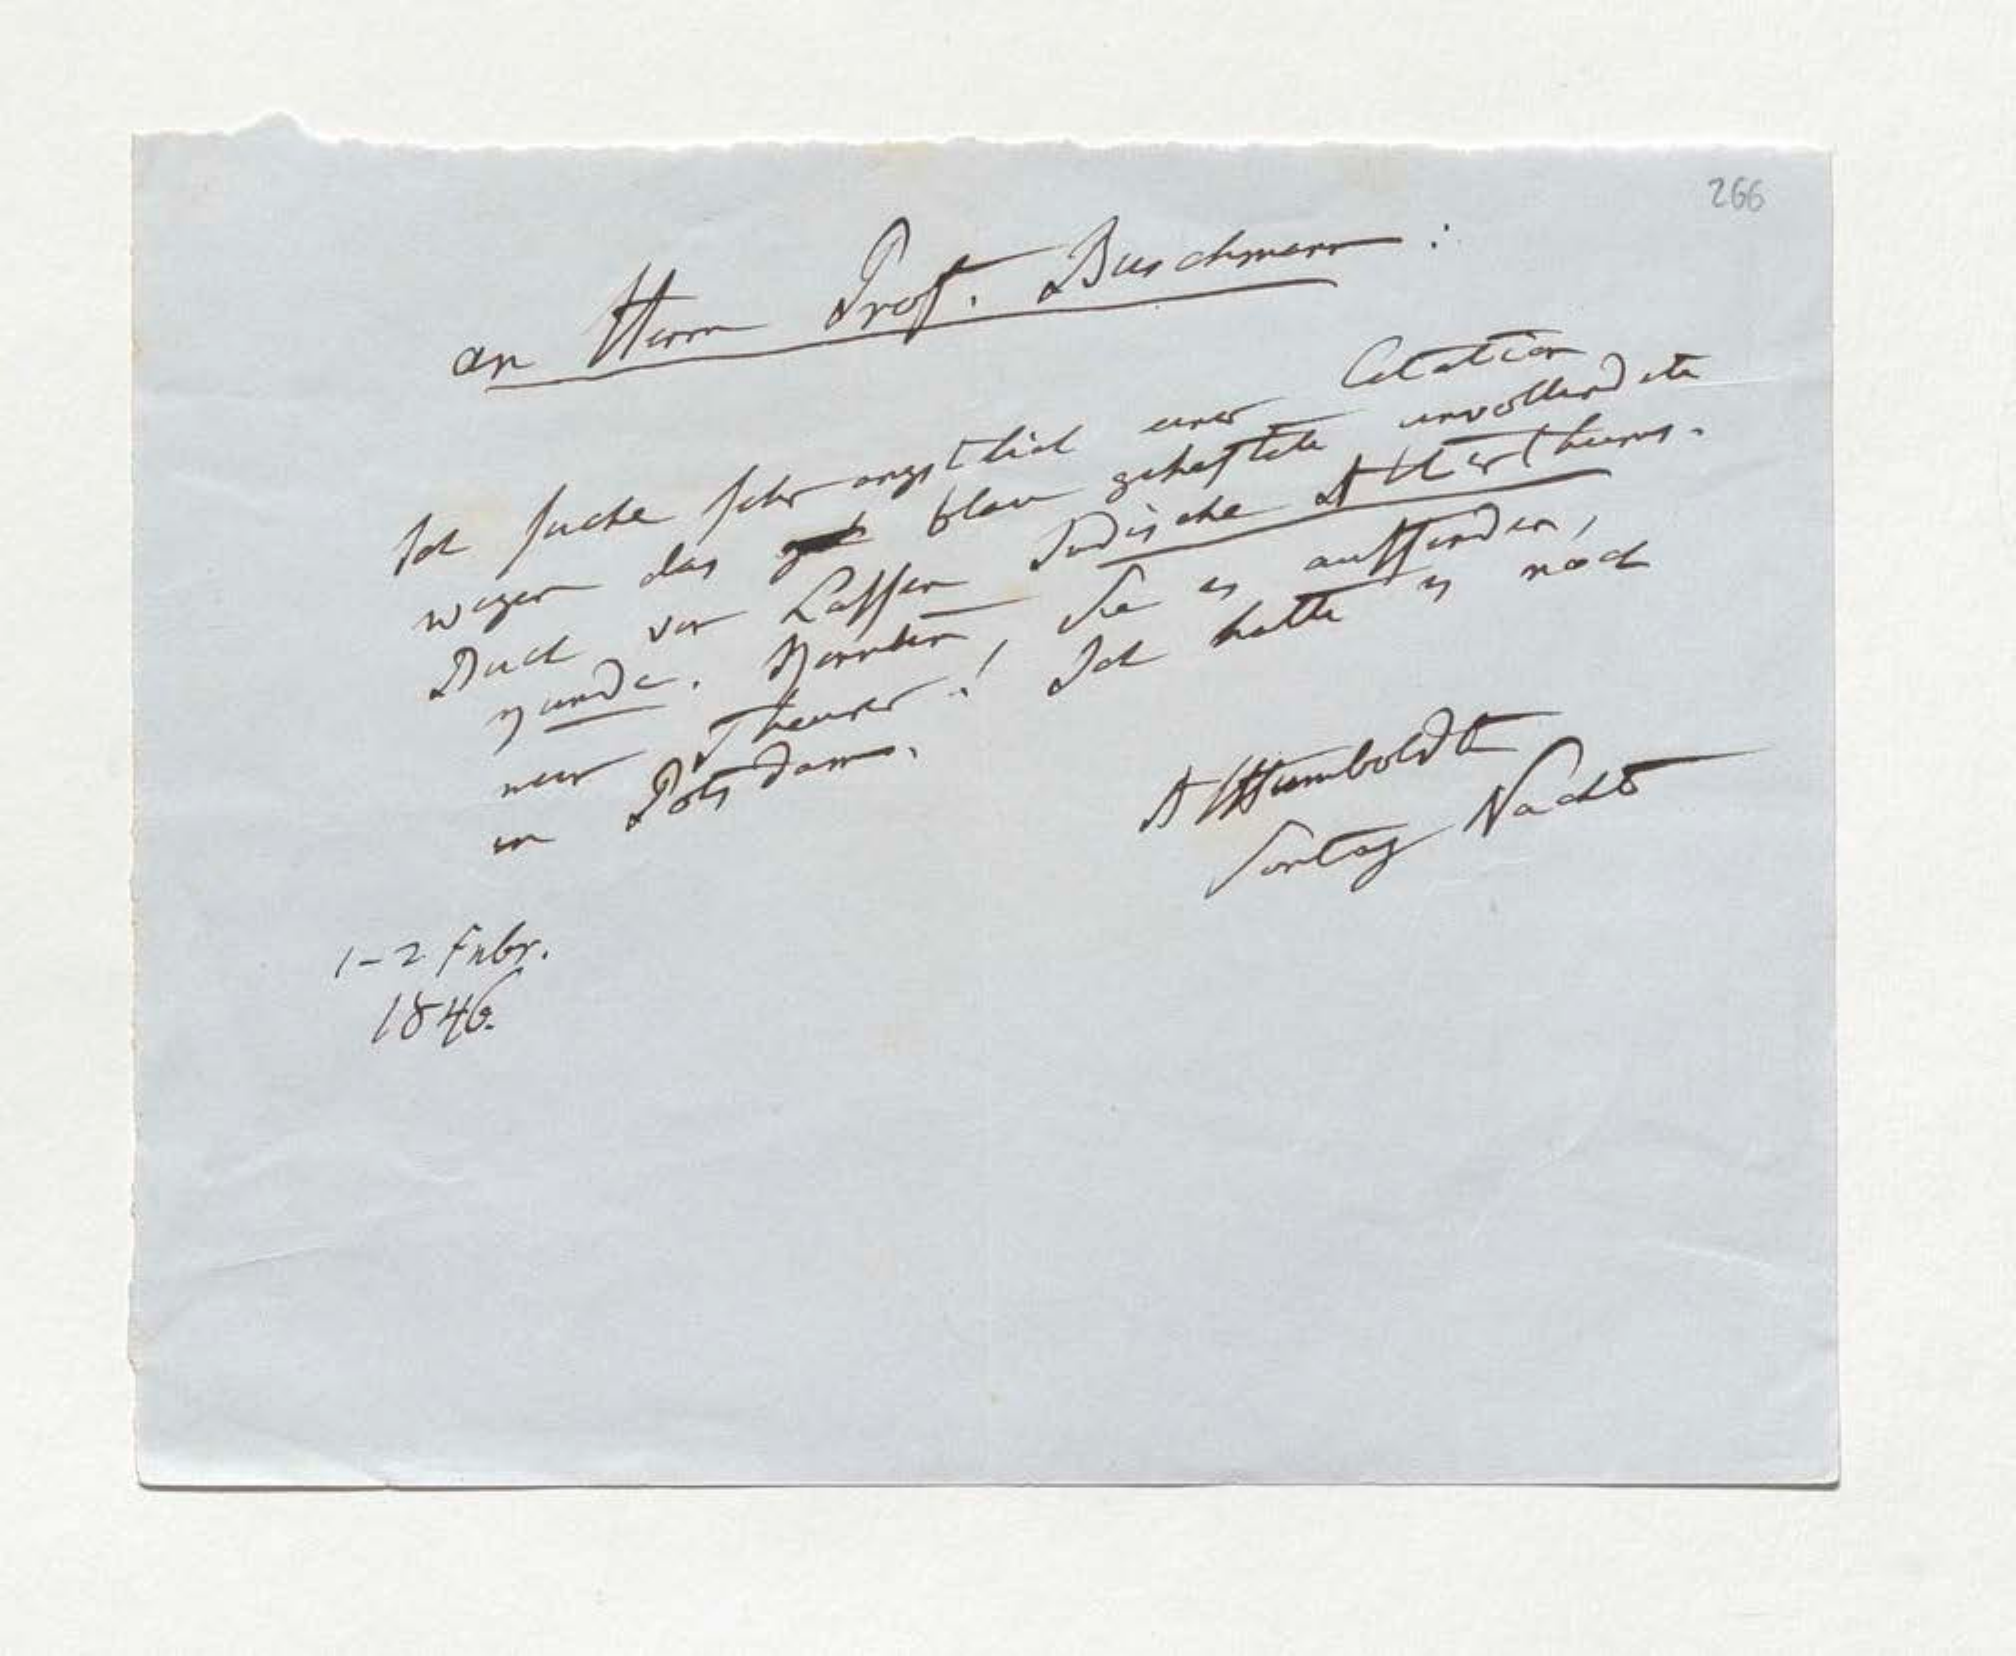 266
an Herrn Prof. Buschmann :
Ich suche sehr angstlich einer Citation
wegen das blau geheftete unvollendete
Buch von Lassen Indische Alterthums-
kunde. Könnten Sie es auffinden,
mein Theurer! Ich hatte es noch
in Potsdam.
AHumboldt
Sontag Nacht
1-2 Febr.
1846.